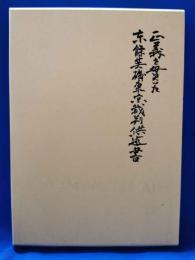 正義を貫いた
東條英機東京裁判供述書